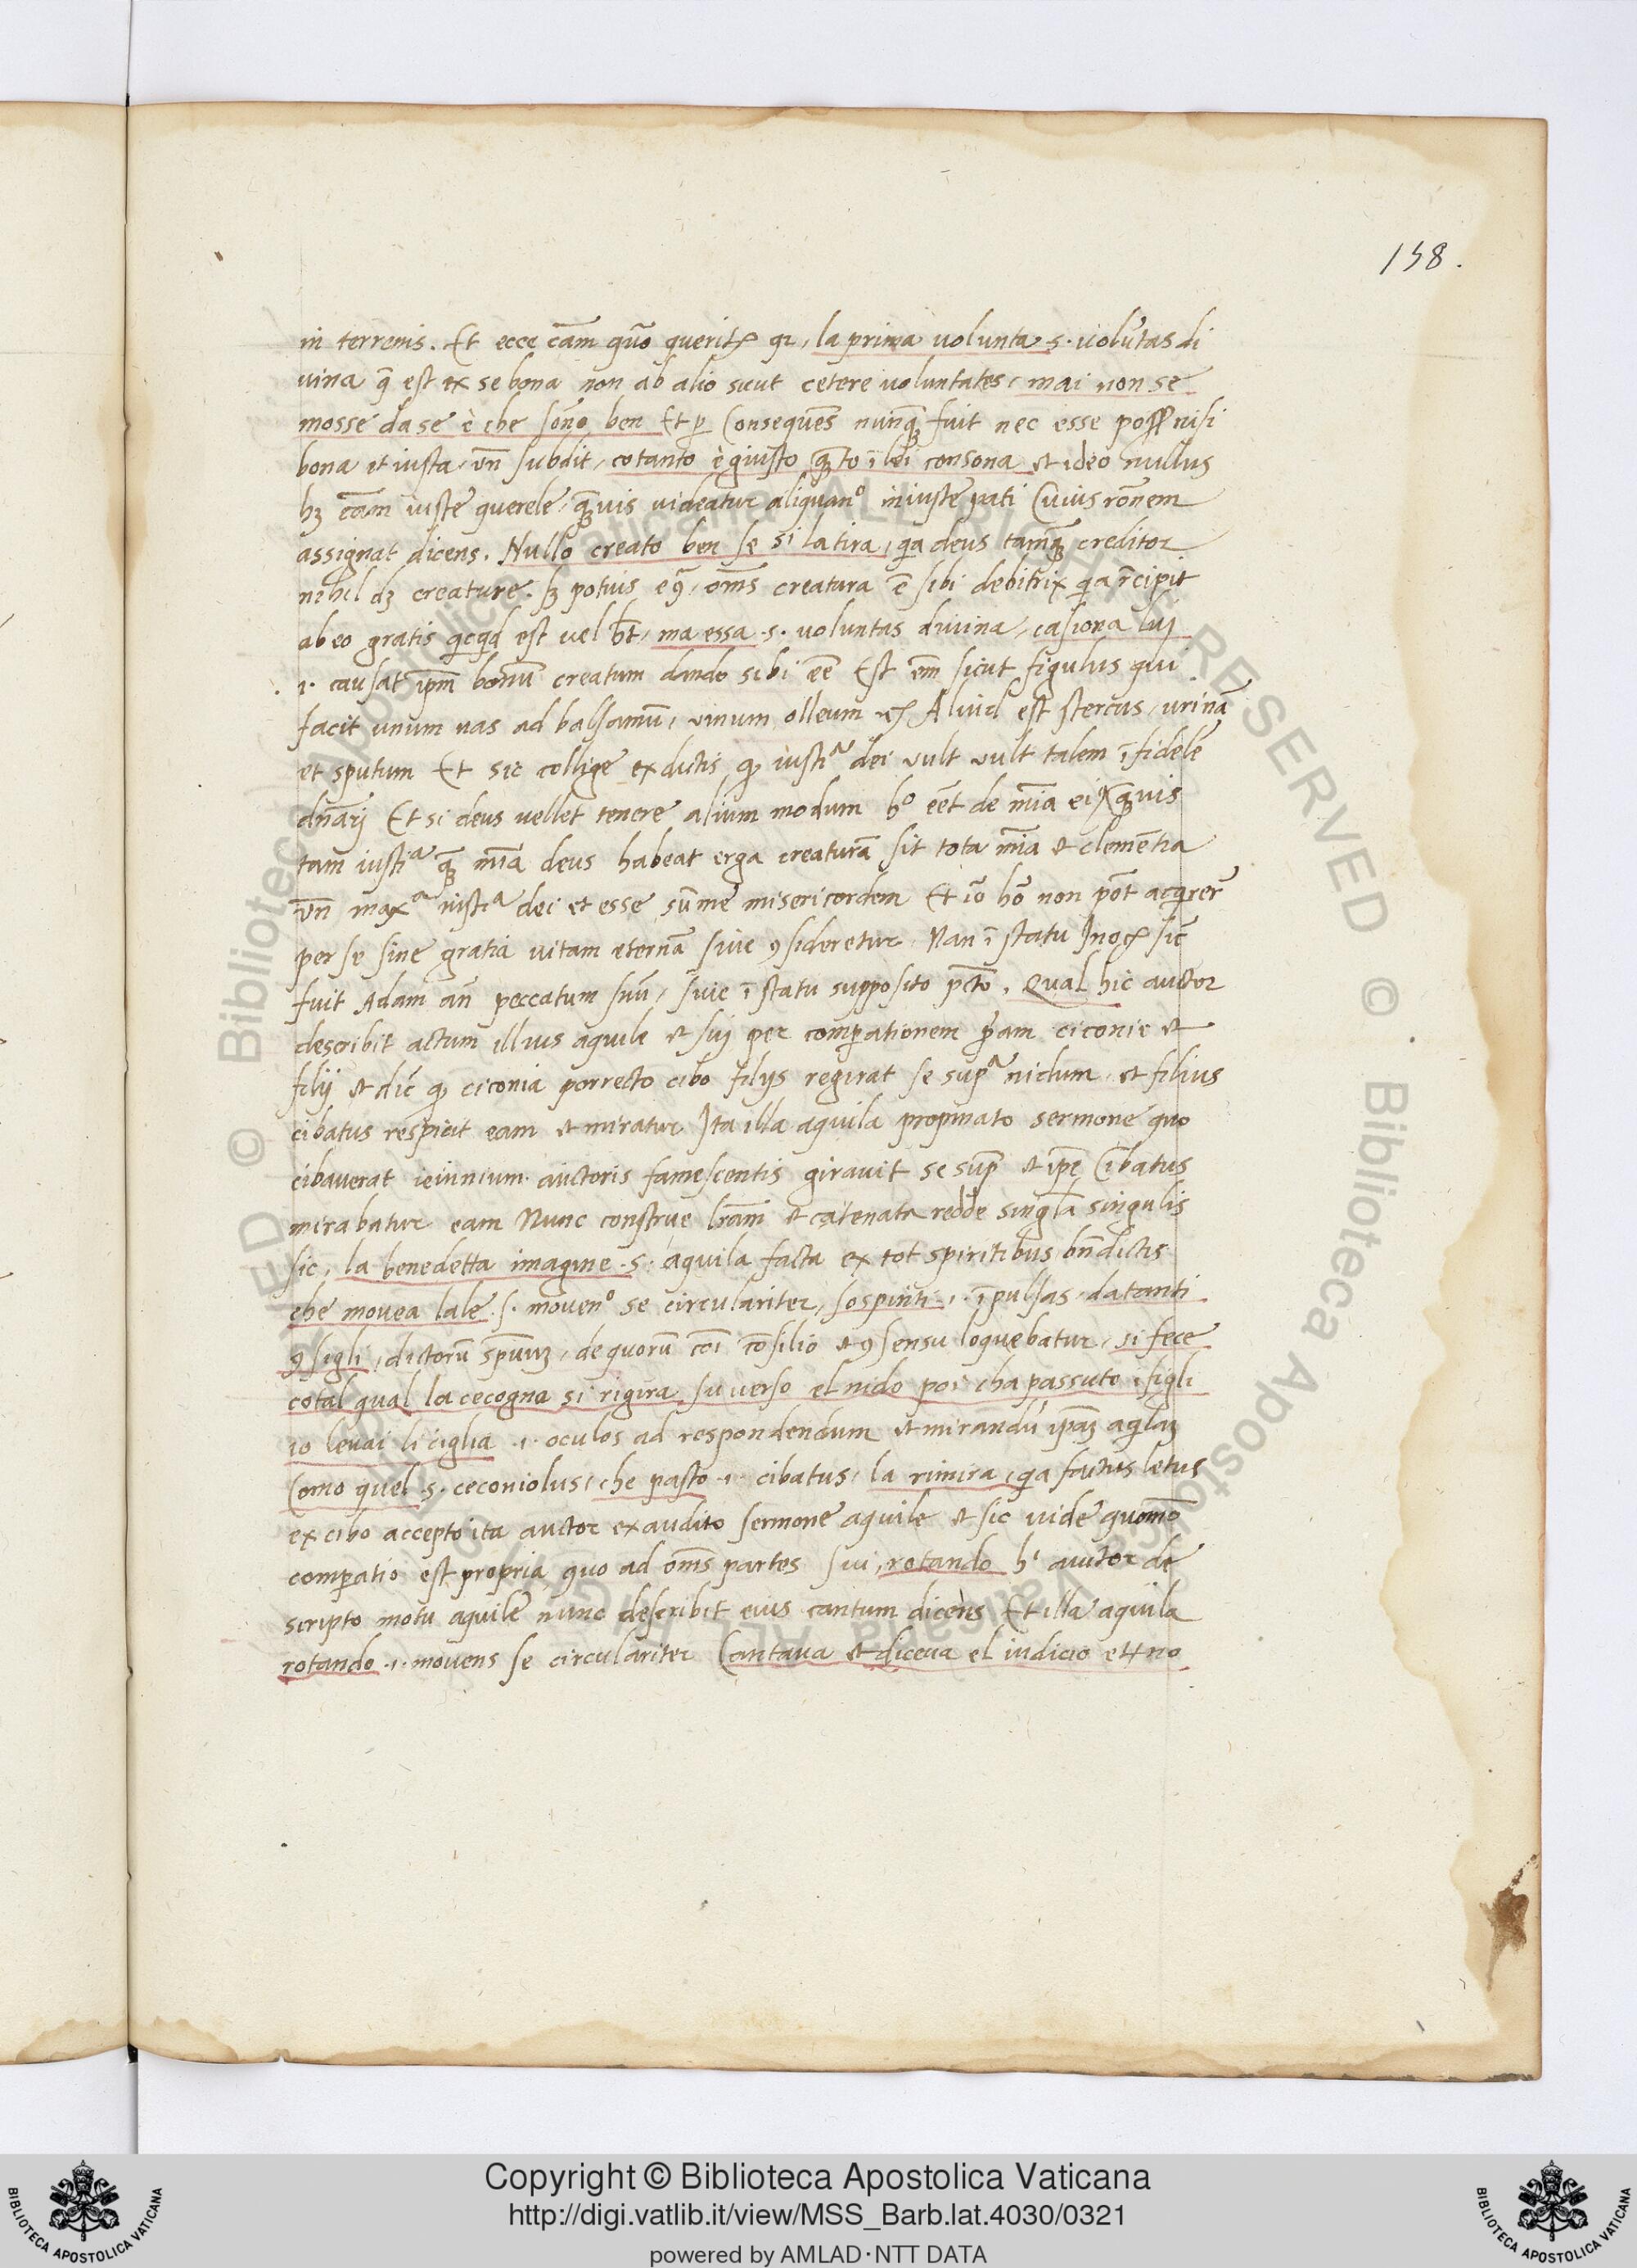 158.
in terrenis. Et ecce cām quō querit᷑ qꝛ, la prima volunta .s. volūtas di
vina q̄ est ex se bona non ab alio sicut cetere voluntates, mai non se
mosse da se è che sōno ben Et ꝑ Consequēs nunqꝫ fuit nec esse poss nisi
bona et iusta, vn̄ subdit, cotanto è giusto quāto ī lei consona et ideo nullus
hꝫ cām iuste querele, qꝫuis videatur aliquanº iniuste pati Cuius rōnem
assignat dicens. Nullo creato ben se si la tira, qa deus tamqꝫ creditor
nihil dꝫ creature. sꝫ potius eꝯ, oms creatura ē sibi debitrix qa rēcipit
ab eo gratis qcqd est vel h̄t, ma essa .s. voluntas divina, casiona lui
.i. causat ipm̄ bonū creatum dando sibi eē Est em̄ sicut figulus qui
facit unum vas ad balsamū, vinum olleum etc Aliud est stercus, urinā
et sputum Et sic collige ex dictis qꝫ iustiᵃ dei vult vult talem īfidelē
dn̄arj Et si deus vellet tenere alium modum hº eēt de mīa ei qꝫuis
tam iustiᵃ qꝫ mīa deus habeat erga creaturā sit tota mīa et clemētia
vn̄ maxᵃ iustiᵃ dei et esse sūme misericordem Et iō hō non pōt acqrer̄
per se sine gratia vitam eternā sive ꝯsideretur. Nan ī statu Inoc᷑ sic̄
fuit Adam an̄ peccatum suū, sive ī statu supposito pcto. Qual hic auctor
describit actum illius aquile et sui per comꝑationem ꝓpam ciconie et
filij et dic̄ qꝫ ciconia porrecto cibo filijs regirat se supᵃ nidum, et filius
cibatus respicit eam et miratur Ita illa aquila propinato sermone quo
cibaverat ieiunium auctoris famescentis giravit se sup̄ et ip̄e Cibatus
mirabatur eam Nunc construe lr̄am et catenata redde singl̄a singulis
sic, la benedetta imagine .s. aquila facta ex tot spiritibus bn̄dictis
che movea lale .s. movenº se circulariter, sospinti .i. īpulsas, da tanti
ꝯsigli, dictorū spūuꝫ, de quorū cōi cōsilio et ꝯsensu loquebatur, si fece
cotal qual la cecogna si rigira su verso el nido poi cha passuto i figli
io levai li ciglia .i. oculos ad respondendum et mirandū ip̄aꝫ aqlaꝫ
Como quel .s. ceconiolus, che pasto .i. cibatus, la rimira, qa factus letus
ex cibo accepto ita auctor ex audito sermone aquile et sic vide quomō
comꝑatio est propria quo ad oms partes sui, rotando hⁱ auctor de
scripto motu aquile nunc describit eius cantum dicens Et illa aquila
rotando .i. movens se circulariter Cantava et diceva el iudicio et̄tno
Copyright © Biblioteca Apostolica Vaticana
http://digi.vatlib.it/view/MSS_Barb.lat.4030/0321
powered by AMLAD·NTT DATA